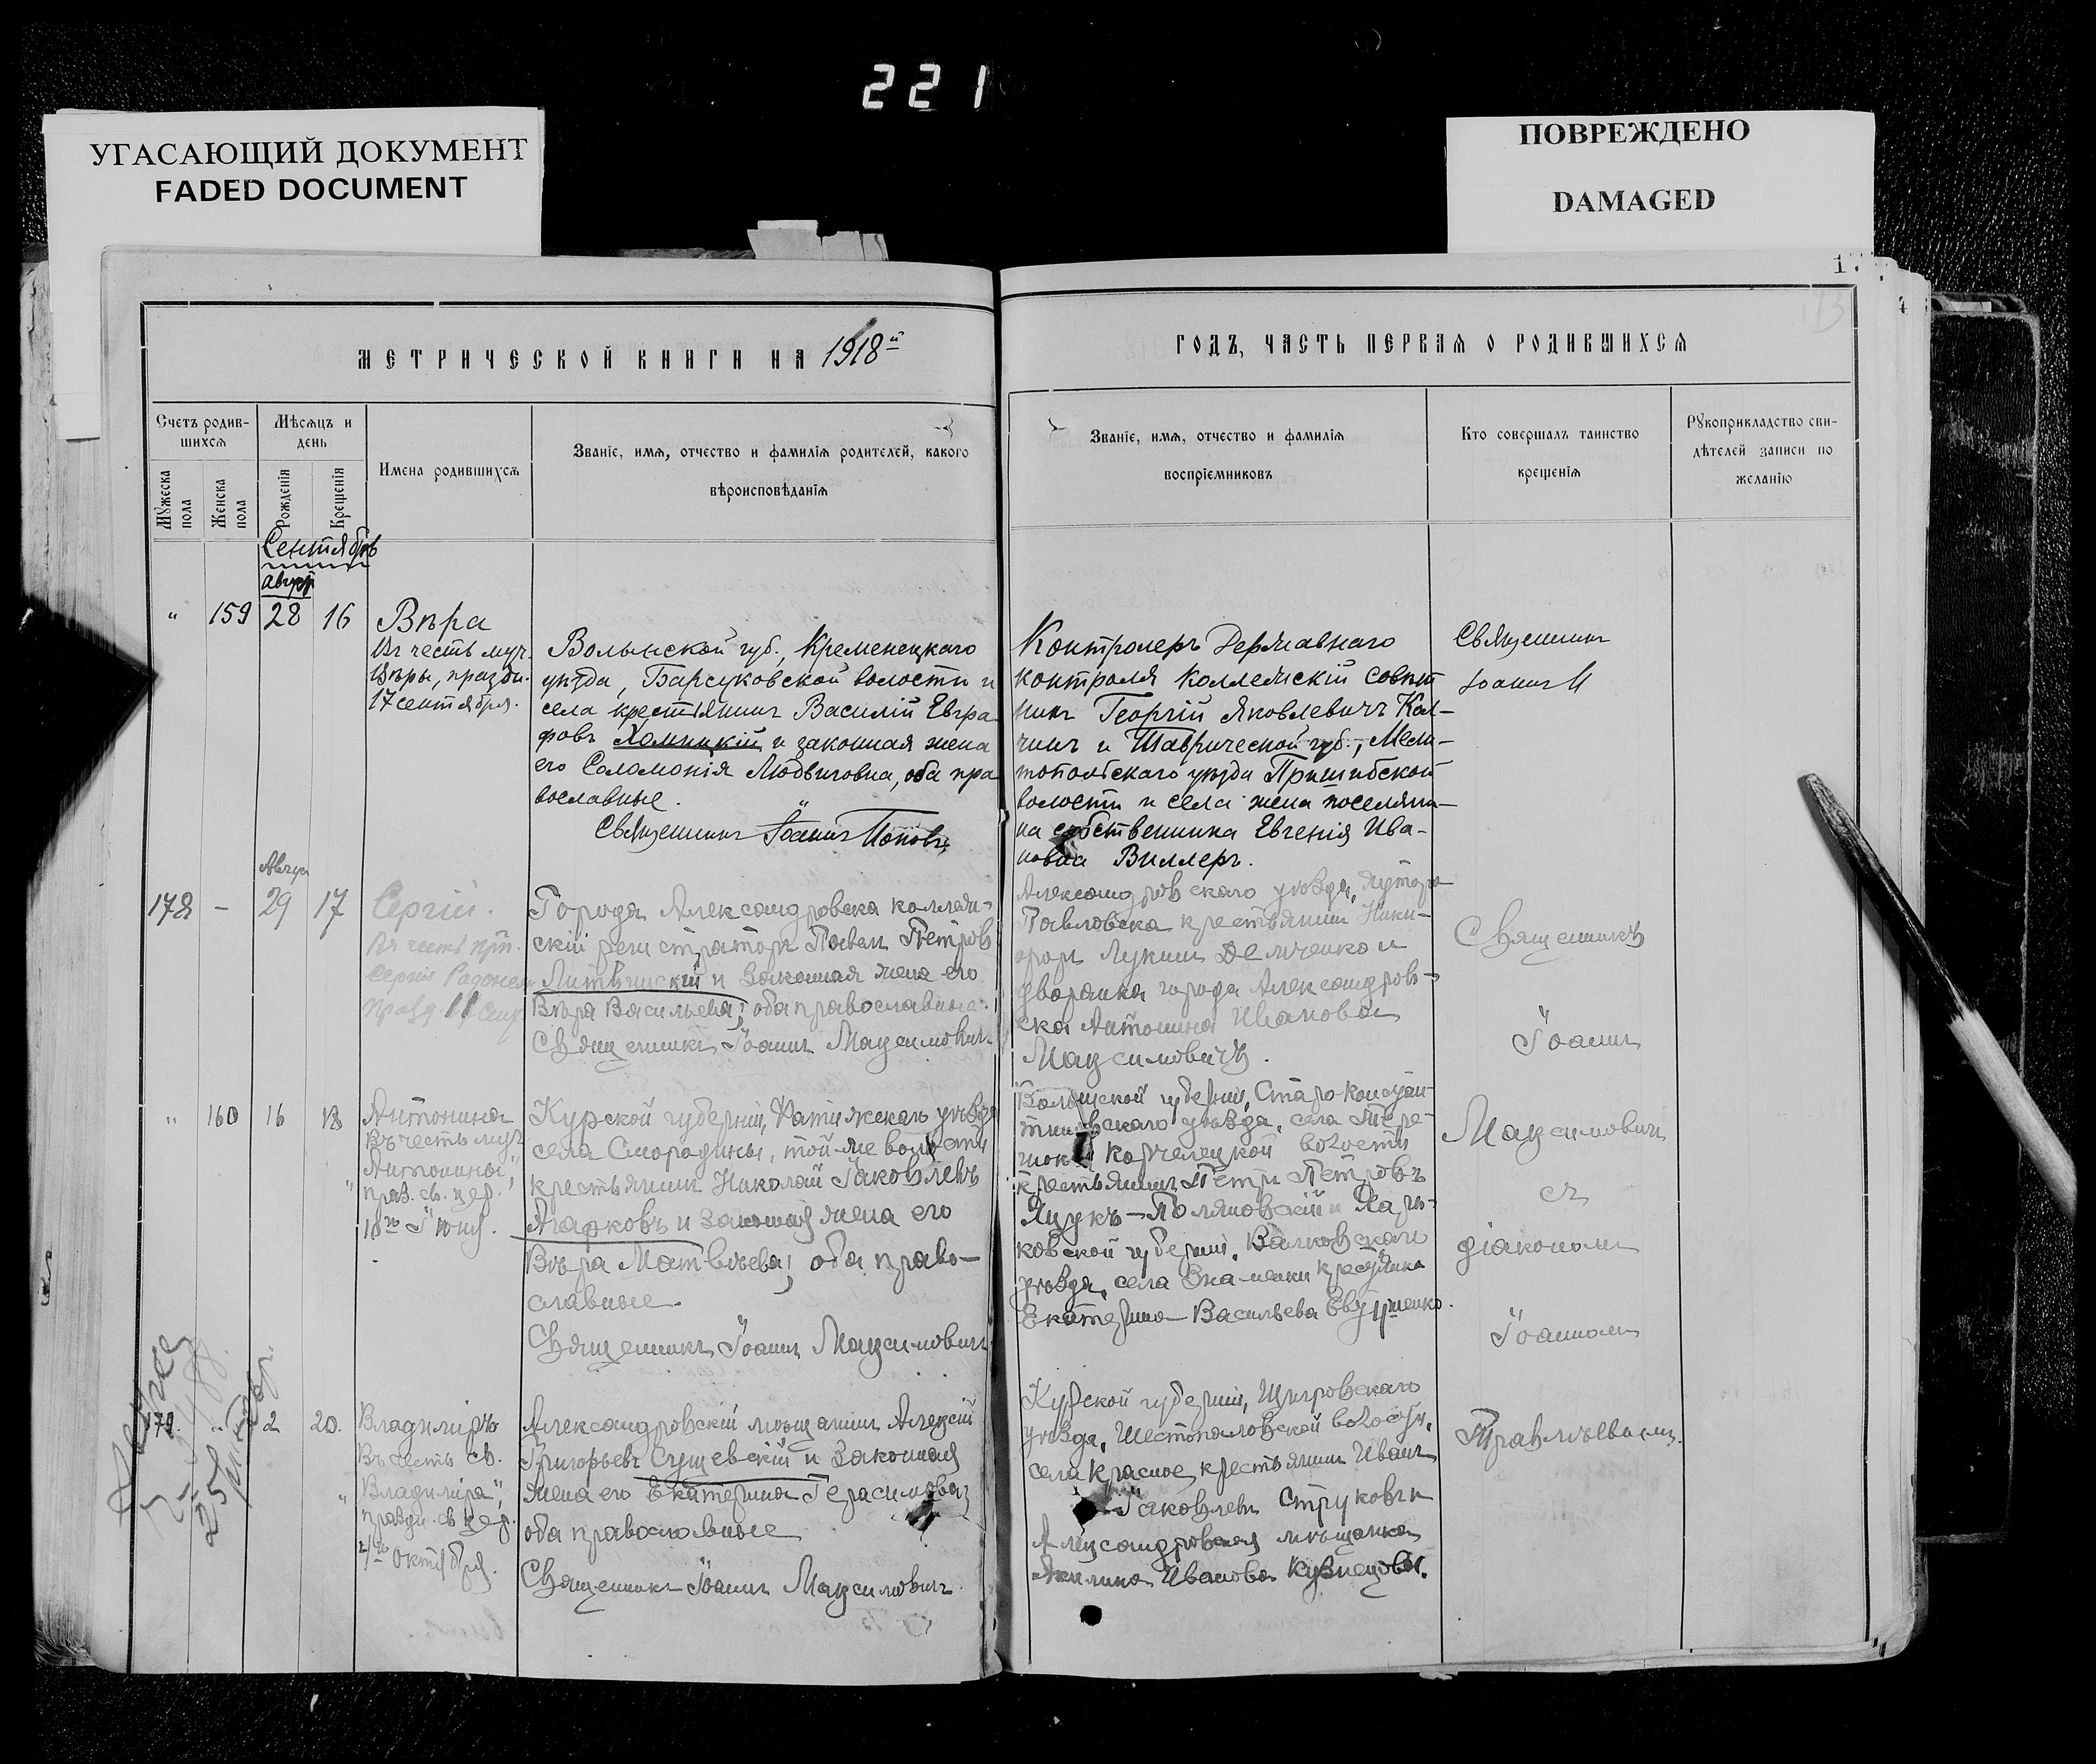 221
УГАСАЮЩИЙ ДОКУМЕНТ
FADED DOCUMENT
ПОВРЕЖДЕНО
DAMAGED
МЕТРИЧЕСКОЙ КНИГИ НА 1918й
ГОДЪ, ЧАСТЬ ПЕРВАЯ О РОДИВШИХСЯ
Счетъ родив-
шихся
Мужеска пола
Женска пола
Мѣсяцъ и
день
Рожденія
Крещенія
Имена родившихся
Званіе, имя, отчество и фамилія родителей, какого
вѣроисповѣданія
Званіе, имя, отчество и фамилія
воспріемниковъ
Кто совершалъ таинство
крещенія
Рукоприкладство сви-
дѣтелей записи по
желанію
Сентябрь
август
" 159 28 16 Вѣра
Въ честь муч.
Вѣры, праздн.
17 сентября.
Волынской губ., Кременецкаго
уѣзда, Барсуковской волости и
села крестьянинъ Василій Евгра-
фовъ Хомицкій и законная жена
его Соломонія Людвиговна, оба пра
вославные.
Священникъ Іоаннъ Поповъ
Контролеръ Державнаго
контроля коллежскій совѣт
никъ Георгій Яковлевичъ Кол-
чинъ и Таврической губ., Мели-
топольскаго уѣзда Пришибской
волости и села жена поселяни-
на собственника Евгенія Ива-
новна Виллеръ.
Священникъ
Іоаннъ
Август
178 - 29 17 Сергій.
Въ честь прп.
Сергія Радонеж
Города Александровска коллеж-
скій регистраторъ Павелъ Петровъ
и законная жена его
Вѣра Васильева; оба православные.
Священникъ Іоаннъ Максимовичъ
Александровскаго уѣзда, хутора
Павловска крестьянинъ Ники-
форъ Лукинъ и
дворянка города Александров-
ска Антонина Иванова
Максимовичъ.
Священникъ
Іоаннъ
Максимовичъ
съ
діакономъ
Іоанномъ
" 160 16 18 Антонина
Въ честь муч.
"Антонины",
празд. св. цер.
10го Іюня.
Курской губерніи, уѣзда
села Смородины, той же волости
крестьянинъ Николай Іаковлевъ
Агарковъ и законная жена его
Вѣра Матвѣева; оба право-
славные.
Священникъ Іоаннъ Максимовичъ
Волынской губерніи, Старо-Констан-
тиновскаго уѣзда, села
волости
крестьянинъ Петръ Петровъ
и Харь-
ковской губерніи, Валковскаго
уѣзда, села Знаменки крестьянка
Екатерина Васильева
179. " 2 20. Владиміръ
Въ честь св.
"Владиміра",
праздн. св. цер.
4го октября.
Александровскій мѣщанинъ Алексій
Григорьевъ Сущевскій и законная
жена его Екатерина Герасимова;
оба православные
Священникъ Іоаннъ Максимовичъ.
Курской губерніи, Щигровскаго
уѣзда, волости,
села Красное, крестьянинъ Иванъ
Іаковлевъ Струковъ и
Александровская мѣщанка
Акилина Иванова Кузнецова.